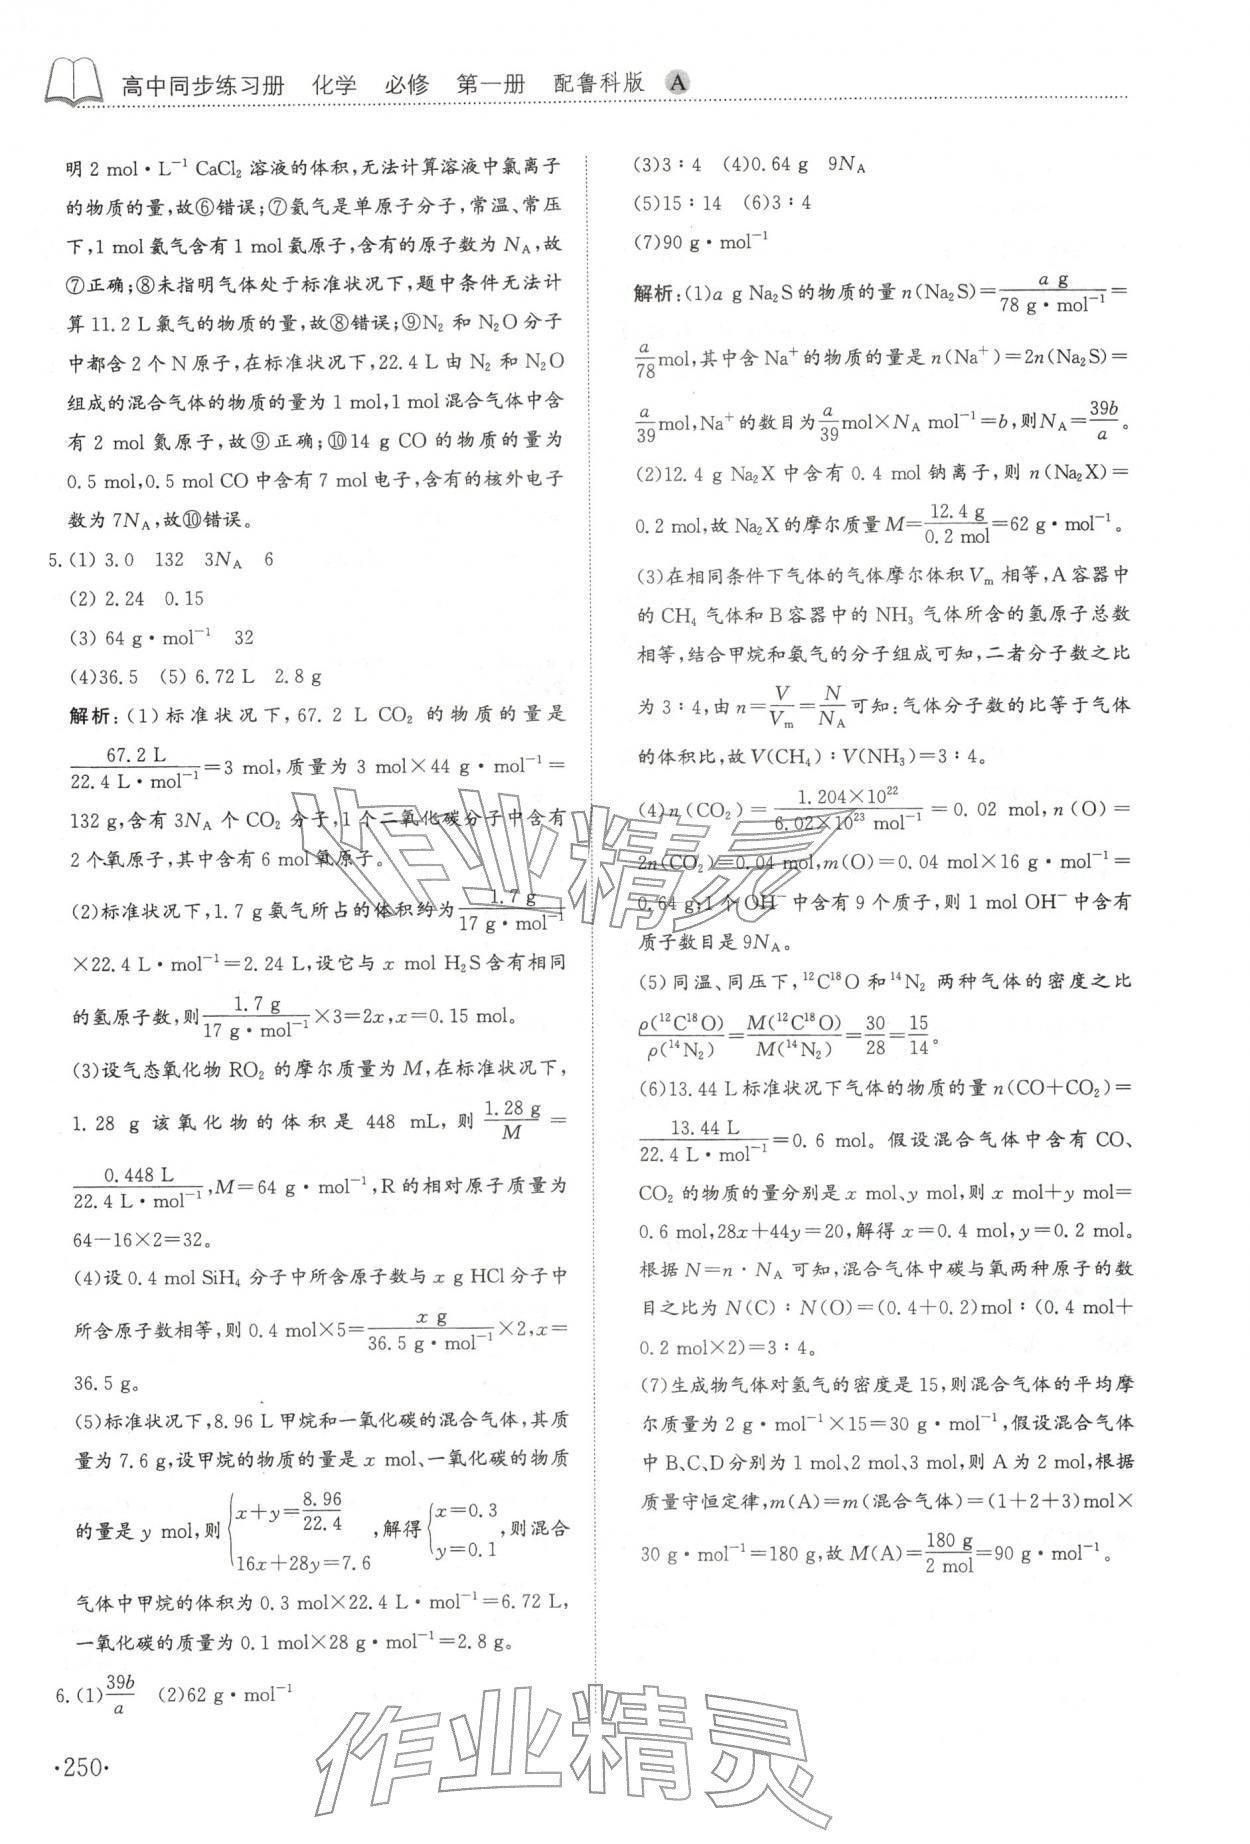 高中同步练习册 化学 必修 第一册 配鲁科版 A
明 2 mol·L⁻¹ CaCl₂ 溶液的体积,无法计算溶液中氯离子
的物质的量,故⑥错误;⑦氦气是单原子分子,常温、常压
下,1 mol氦气含有 1 mol氦原子,含有的原子数为 N_A,故
⑦正确;⑧未指明气体处于标准状况下,题中条件无法计
算 11.2 L氯气的物质的量,故⑧错误;⑨N₂ 和 N₂O 分子
中都含 2 个 N 原子,在标准状况下,22.4 L 由 N₂ 和 N₂O
组成的混合气体的物质的量为 1 mol,1 mol混合气体中含
有 2 mol 氮原子,故⑨正确;⑩14 g CO 的物质的量为
0.5 mol,0.5 mol CO 中含有 7 mol电子,含有的核外电子
数为 7N_A,故⑩错误。
5.(1) 3.0 132 3N_A 6
(2) 2.24 0.15
(3) 64 g·mol⁻¹ 32
(4)36.5 (5) 6.72 L 2.8 g
解析:(1)标准状况下,67.2 L CO₂ 的物质的量是
67.2 L/22.4 L·mol⁻¹=3 mol,质量为 3 mol×44 g·mol⁻¹=
132 g,含有 3N_A 个 CO₂ 分子,1 个二氧化碳分子中含有
2 个氧原子,其中含有 6 mol氧原子。
(2)标准状况下,1.7 g氨气所占的体积约为1.7 g/17 g·mol⁻¹
×22.4 L·mol⁻¹=2.24 L,设它与 x mol H₂S 含有相同
的氢原子数,则1.7 g/17 g·mol⁻¹×3=2x,x=0.15 mol。
(3)设气态氧化物 RO₂ 的摩尔质量为 M,在标准状况下,
1.28 g 该氧化物的体积是 448 mL,则 1.28 g/M =
0.448 L/22.4 L·mol⁻¹,M=64 g·mol⁻¹,R的相对原子质量为
64-16×2=32。
(4)设 0.4 mol SiH₄ 分子中所含原子数与 x g HCl分子中
所含原子数相等,则 0.4 mol×5=x g/36.5 g·mol⁻¹×2,x=
36.5 g。
(5)标准状况下,8.96 L甲烷和一氧化碳的混合气体,其质
量为 7.6 g,设甲烷的物质的量是 x mol、一氧化碳的物质
的量是 y mol,则{x+y=8.96/22.4 16x+28y=7.6,解得{x=0.3 y=0.1,则混合
气体中甲烷的体积为 0.3 mol×22.4 L·mol⁻¹=6.72 L,
一氧化碳的质量为 0.1 mol×28 g·mol⁻¹=2.8 g。
6.(1)39b/a (2)62 g·mol⁻¹
(3)3∶4 (4)0.64 g 9N_A
(5)15∶14 (6)3∶4
(7)90 g·mol⁻¹
解析:(1)a g Na₂S的物质的量 n(Na₂S)=a g/78 g·mol⁻¹=
a/78mol,其中含 Na⁺的物质的量是 n(Na⁺)=2n(Na₂S)=
a/39mol,Na⁺的数目为a/39mol×N_A mol⁻¹=b,则N_A=39b/a。
(2)12.4 g Na₂X 中含有 0.4 mol 钠离子,则 n(Na₂X)=
0.2 mol,故 Na₂X 的摩尔质量 M=12.4 g/0.2 mol=62 g·mol⁻¹。
(3)在相同条件下气体的气体摩尔体积V_m 相等,A容器中
的 CH₄ 气体和 B 容器中的 NH₃ 气体所含的氢原子总数
相等,结合甲烷和氨气的分子组成可知,二者分子数之比
为 3∶4,由 n=V/V_m=N/N_A可知:气体分子数的比等于气体
的体积比,故 V(CH₄)∶V(NH₃)=3∶4。
(4)n(CO₂)=1.204×10²²/6.02×10²³ mol⁻¹=0.02 mol,n(O)=
2n(CO₂)=0.04 mol,m(O)=0.04 mol×16 g·mol⁻¹=
0.64 g;1个OH⁻中含有 9 个质子,则 1 mol OH⁻中含有
质子数目是 9N_A。
(5)同温、同压下,¹²C¹⁸O 和¹⁴N₂ 两种气体的密度之比
ρ(¹²C¹⁸O)/ρ(¹⁴N₂)=M(¹²C¹⁸O)/M(¹⁴N₂)=30/28=15/14。
(6)13.44 L标准状况下气体的物质的量 n(CO+CO₂)=
13.44 L/22.4 L·mol⁻¹=0.6 mol。假设混合气体中含有 CO、
CO₂ 的物质的量分别是 x mol、y mol,则 x mol+y mol=
0.6 mol,28x+44y=20,解得 x=0.4 mol,y=0.2 mol。
根据 N=n·N_A 可知,混合气体中碳与氧两种原子的数
目之比为 N(C)∶N(O)=(0.4+0.2)mol∶(0.4 mol+
0.2 mol×2)=3∶4。
(7)生成物气体对氢气的密度是 15,则混合气体的平均摩
尔质量为 2 g·mol⁻¹×15=30 g·mol⁻¹,假设混合气体
中 B、C、D分别为 1 mol、2 mol、3 mol,则 A为 2 mol,根据
质量守恒定律,m(A)=m(混合气体)=(1+2+3)mol×
30 g·mol⁻¹=180 g,故 M(A)=180 g/2 mol=90 g·mol⁻¹。
作业精灵
作业精灵
·250·